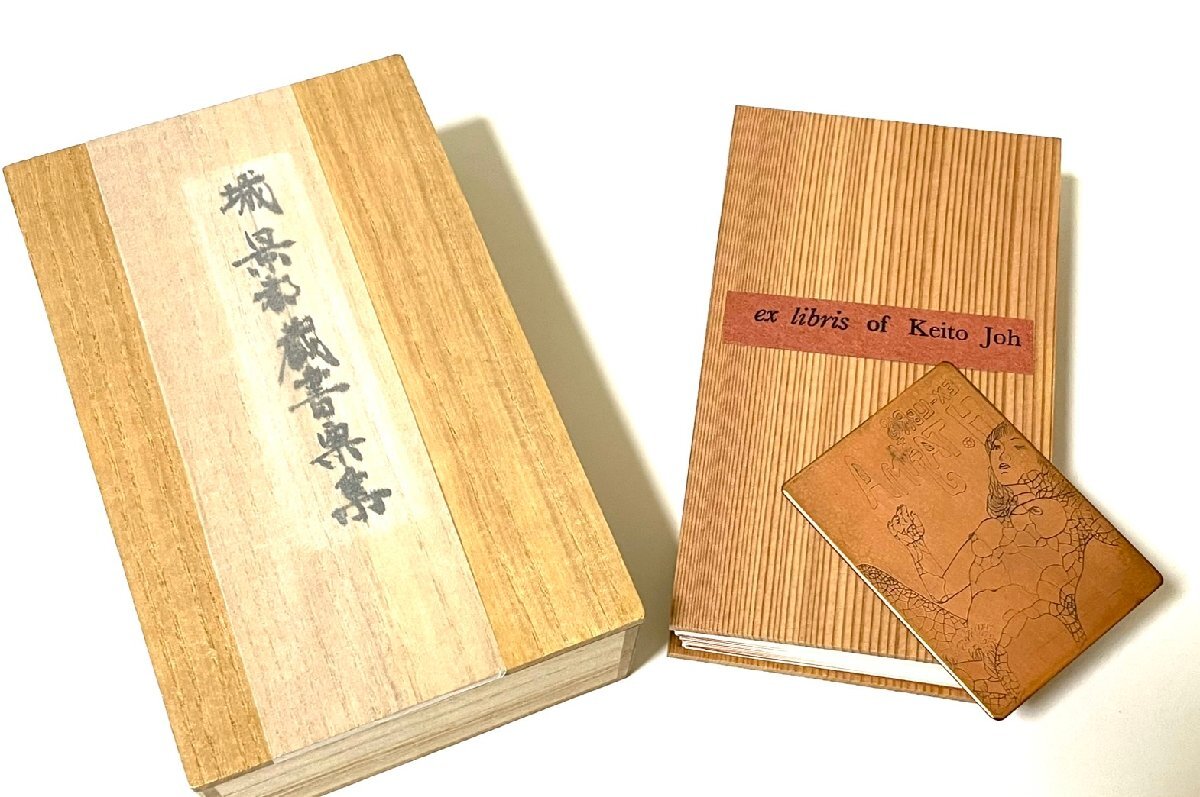 城景都蔵書票集
ex libris of Keito Joh